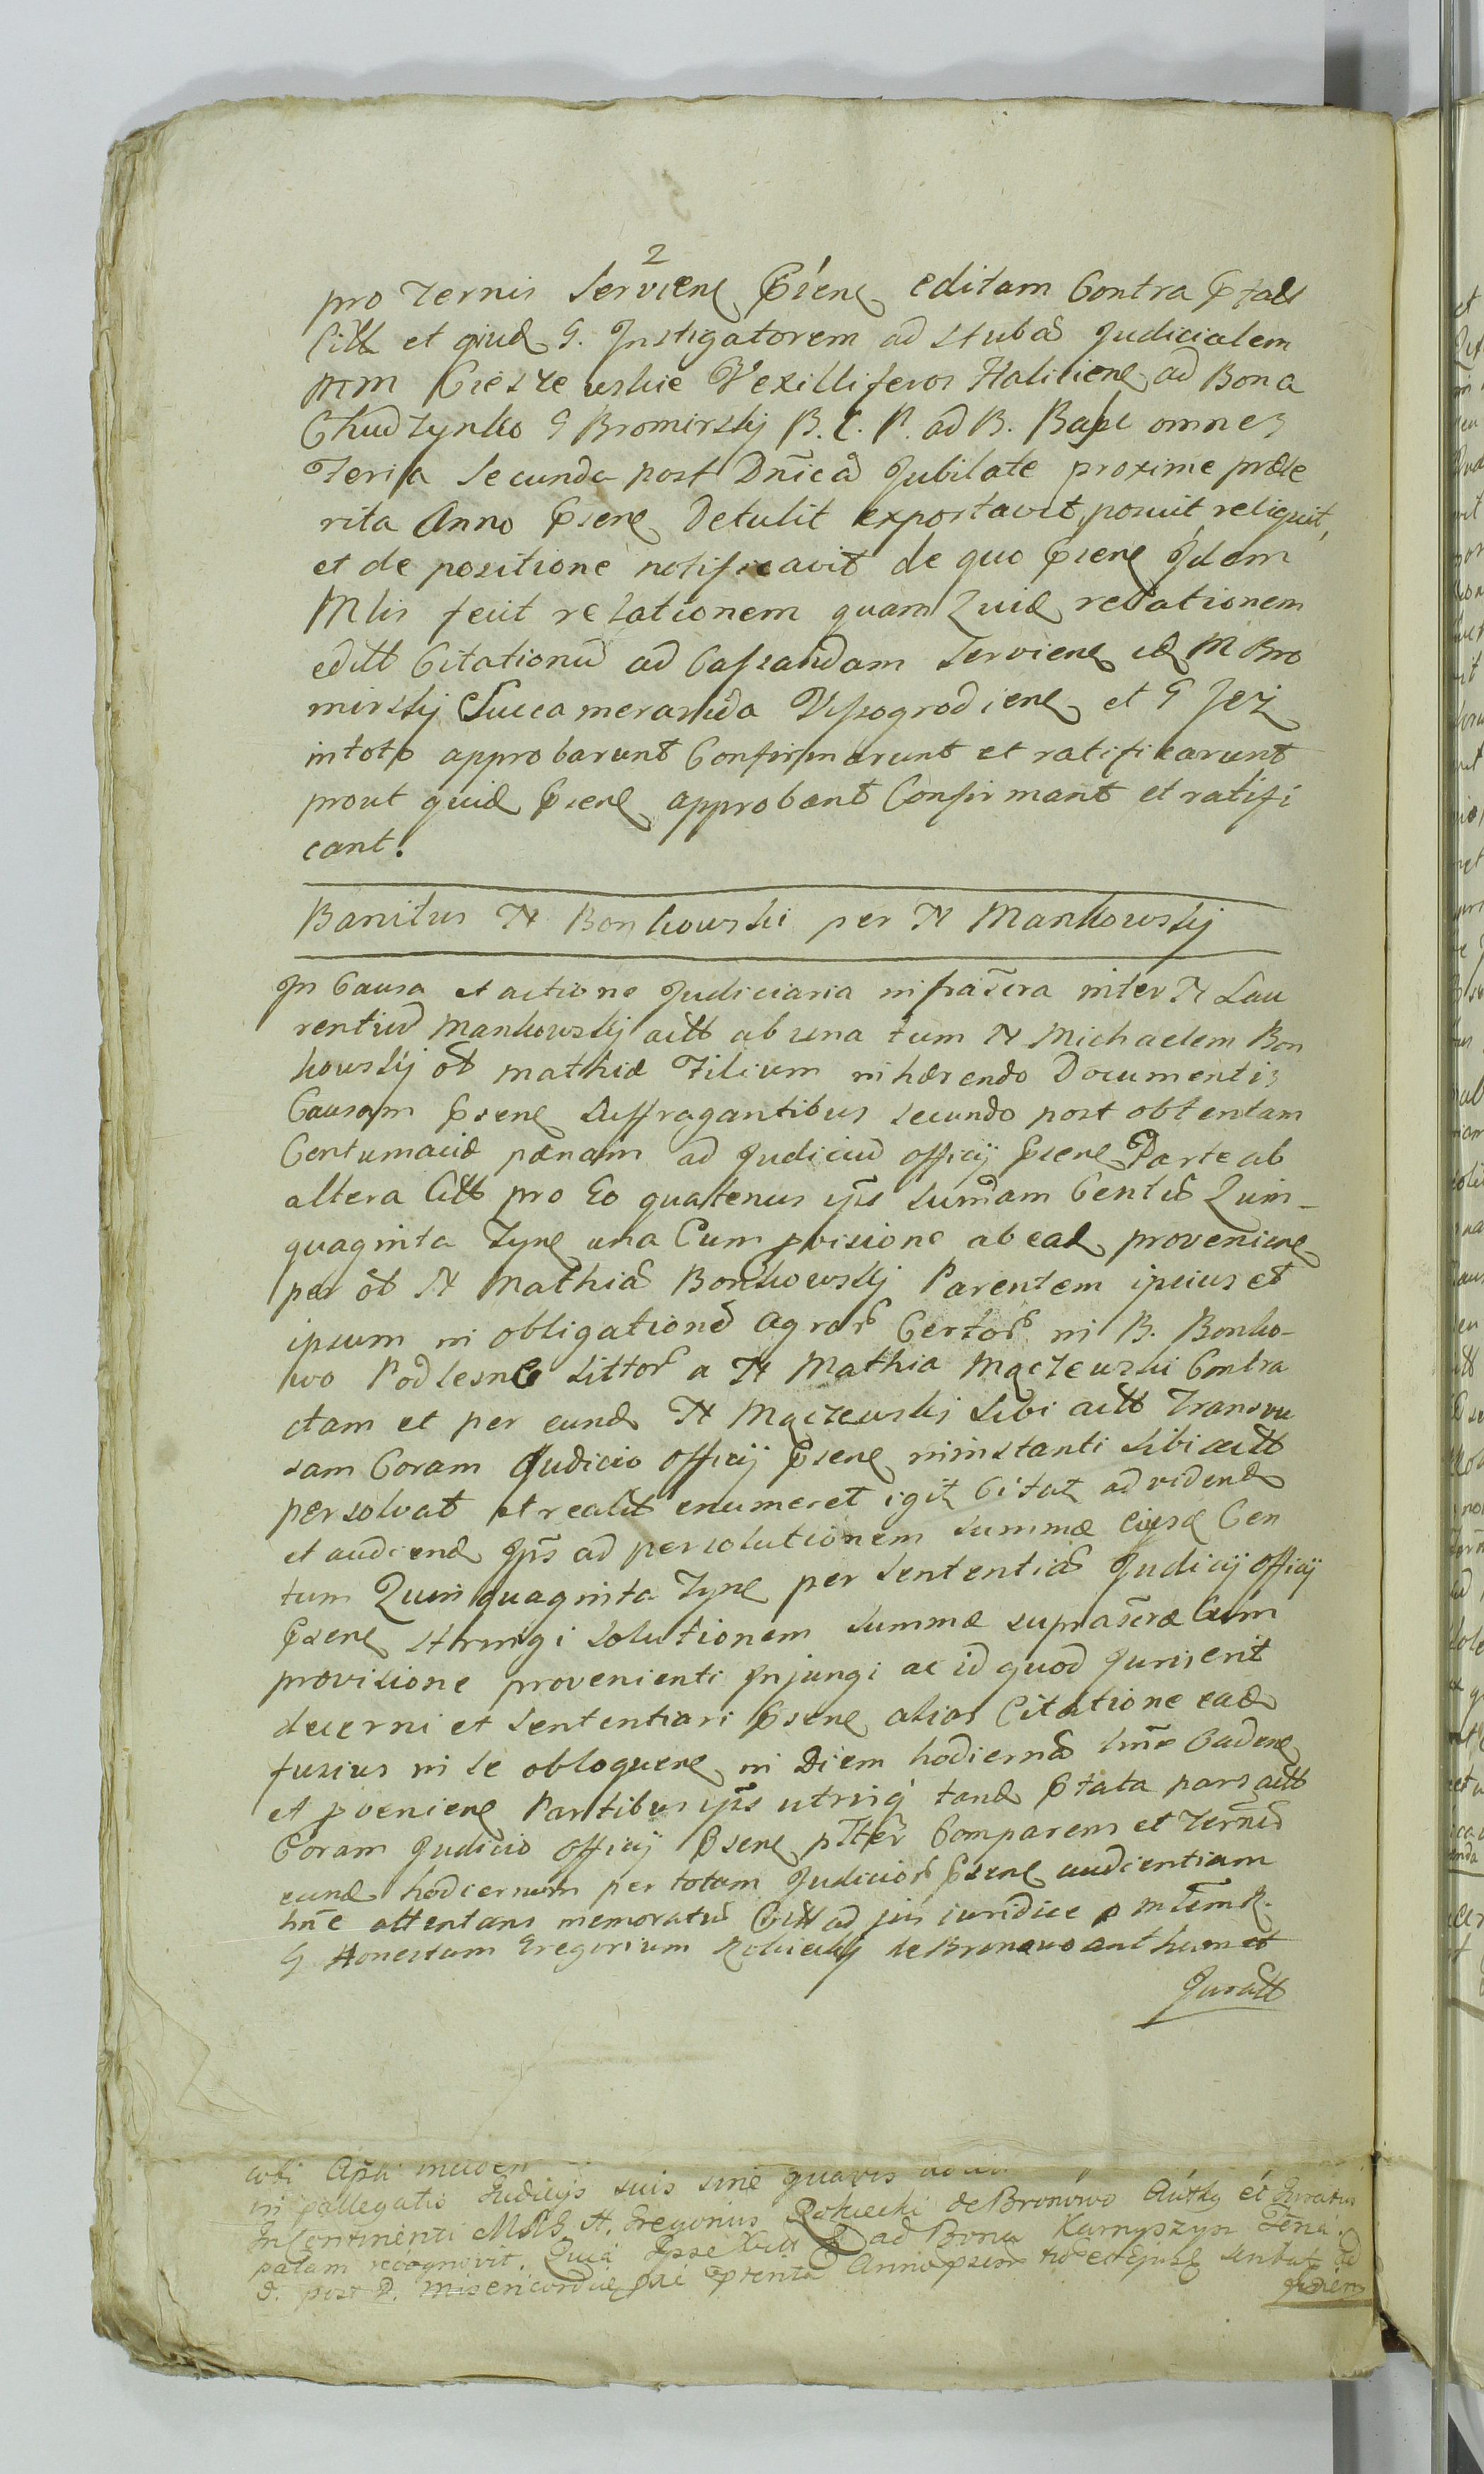 2
pro Ternis Serviene Psene editam Contra Ptals
Citt et quid G. Instigatorem ad stubã Judicialem
MM Cieszewskie Vexilliferos Haliciene ad Bona
Chudzynko G Bromirskij B. C. P. ad B. Bape omnes
Feria Secunda post Dnicã Jubilate proxime præte
rita Anno Psene Detulit exportavit posuit reliquit,
et de positione notificavit de quo Psene Idem
Mlis fecit relationem quam Quid relationem
editt Citationũ ad Cassandam Serviene id M Bro
mirskij Succamerarida Vissogrodiene et G Jez
intoto approbarunt Confirmarunt et ratificarunt
prout quid Psene approbant Confirmant et ratifi
cant.
Banitus N Bonkowski per N Mankowskij
In Causa et actione Judiciaria infrascra inter N Lau
rentiũ Mankowskij actt ab una tum N Michaelem Bon
kowskij ot Mathiæ Filium inhærendo Documentis
Causam Psene Suffragantibus secundo post obtentam
Contumaciæ pænam ad Judiciũ officij Psene Parte ab
altera Citt pro Eo quatenus ips Sumam Centũ Quin-
quaginta Tyne una Cum pvisione abead proveniene
per ot N Mathiã Bonkowskij Parentem ipsius et
ipsum in obligationẽ Agror Certor in B. Bonko-
wo Podlesne Sittor a N Mathia Mączewski Contra
ctam et per eund N Mączewskij Sibi actt Transfu
sam Coram Judicio officij Psene ininstanti Sibi actt
persolvat et realit enumeret igit Citat ad vidend
et audiend Ips ad persolutionem Summæ Ejusd Cen
tum Quinquaginta Tyne per Sententiã Judicij officij
Psene stringi solutionem summæ suprascræ Cum
provisione provenienti Injungi ac id quod Juris erit
decerni et Sententiari Psene alias Citatione ead
fusius in se obloquene in Diem hodiernã hnc Cadene
et pveniene Partibus ips utrinq tand Ptata pars actt
Coram Judicio officij Psene plter Comparens et Ternũ
eund hodiernum per totam Judicior Psene audientiam
hnc attentans memoratũ Citt ad jus iuridice p Mlem R.
G Honestum Gregorium Rokicckij de Bronowo authum et
Juratt
in pallegatis Iudicijs suis sine quavis
InContinenti MRG H. Gregorius Rokiecki de Bronowo Authg et Juratus
palam recognovit. Quia Ipse ad Bona Karnyszyn Feria
d. post D. Misericordiæ Anno psen